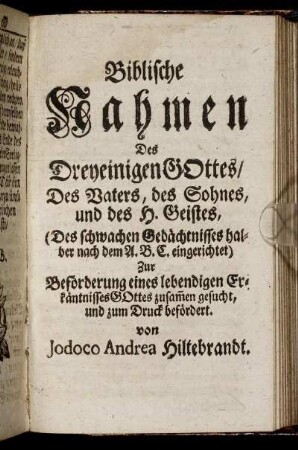 Biblische
Nahmen
Des
Dreyeinigen GOttes/
Des Vaters, des Sohnes,
und des H. Geistes,
(Des schwachen Gedächtnisses hal-
ber nach dem A. B. C. eingerichtet)
Zur
Beförderung eines lebendigen Er-
käntnisses GOttes zusam̃en gesucht,
und zum Druck befördert.
von
Jodoco Andrea Hiltebrandt.